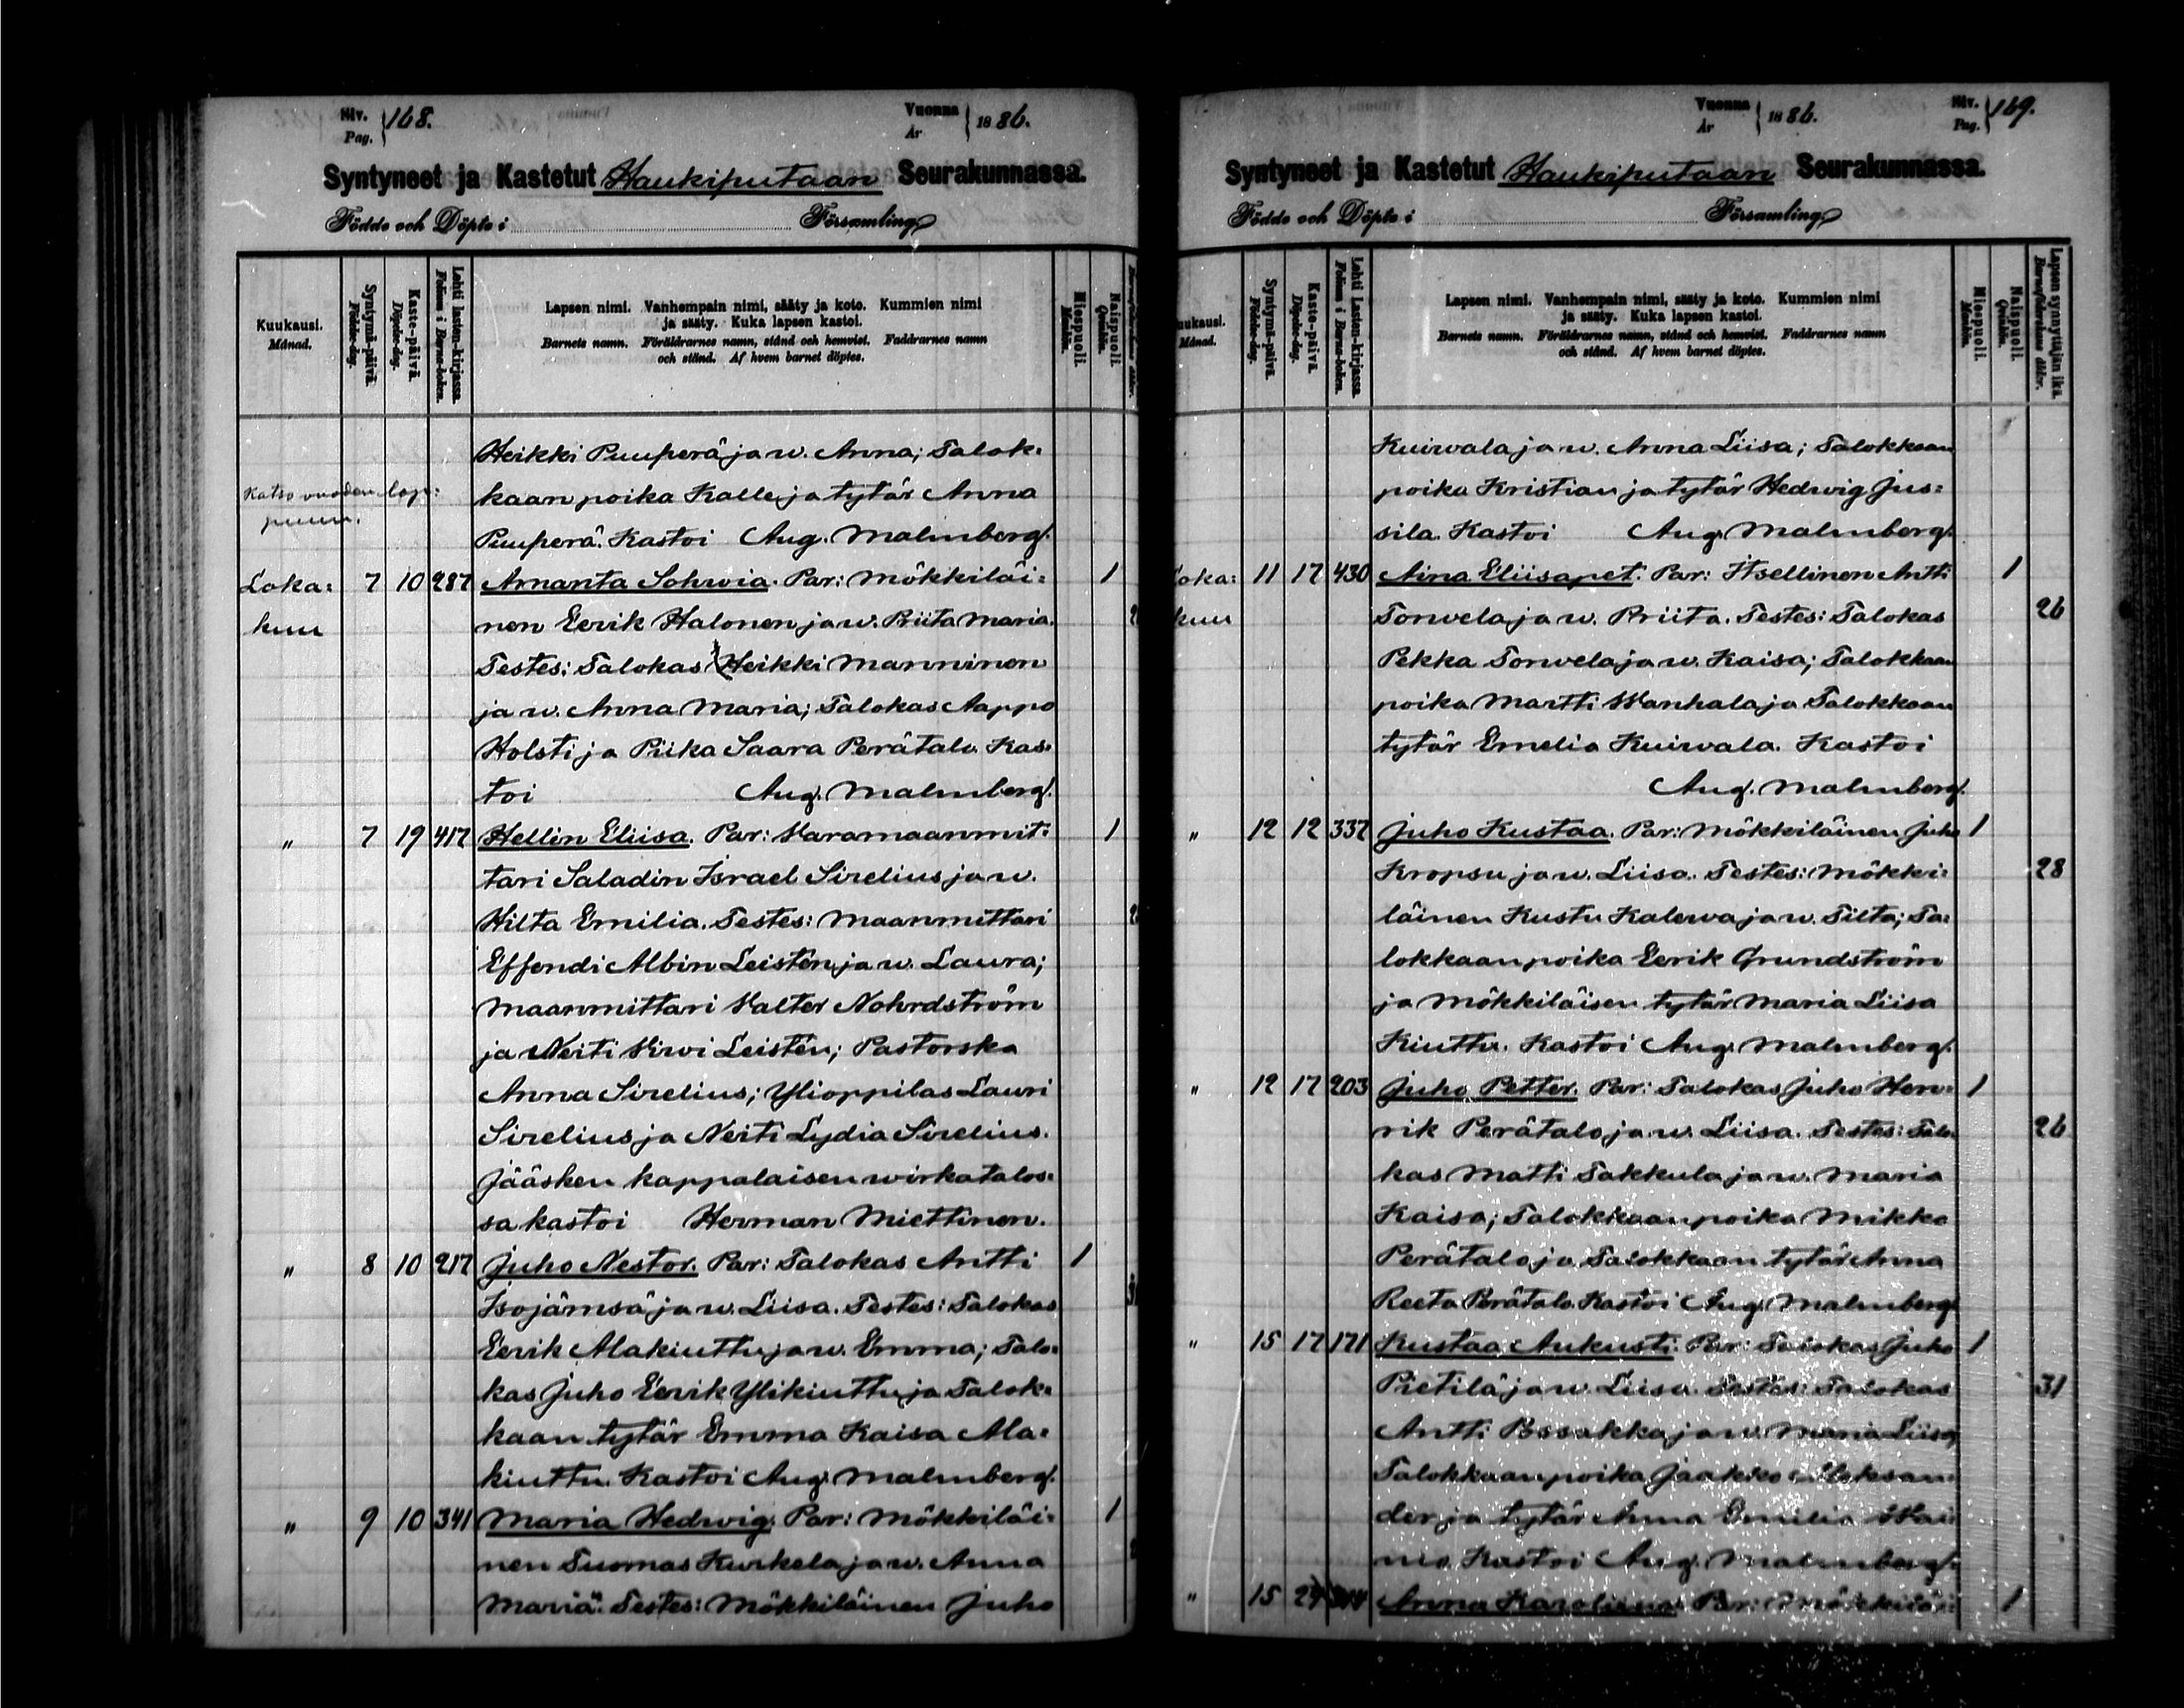 Siv. Pag. 168.
Vuonna År 1886.
Syntyneet ja Kastetut Haukiputaan Seurakunnassa.
Födde och Döpte i Församling
Kuukausi. Månad.
Syntymä-päivä. Födde-dag.
Kaste-päivä. Döpelse-dag.
Lehti lasten-kirjassa. Folium i Barna-boken.
Lapsen nimi. Vanhempain nimi, sääty ja koto. Kummien nimi
ja sääty. Kuka lapsen kastoi.
Barnets namn. Föräldrarnes namn, stånd och hemvist. Faddrarnes namn
och stånd. Af hvem barnet döptes.
Miespuoli. Mankön.
Naispuoli. Qvinkön.
Heikki Puuperä ja w. Anna; Talok-
Katso vuoden lop:
puun.
kaan poika Kalle ja tytär Anna
Puuperä. Kastoi Aug. Malmberg.
Loka= 7 10 287 Amanta Sohwia. Par: Mökkiläi= 1
kuu nen Eerik Halonen ja w. Priita Maria.
Testes: Talokas Heikki Manninen
ja w. Anna Maria; Talokas Aappo
Holsti ja Piika Saara Perätalo. Kas-
toi Aug. Malmberg.
" 7 19 417 Hellin Eliisa. Par: Varamaanmit= 1
tari Saladin Israel Sirelius ja w.
Hilta Emilia. Testes: Maanmittari
Effendi Albin Leistén ja w. Laura;
Maanmittari Valter Nohrdström
ja Neiti Virvi Leistén; Pastorska
Anna Sirelius; Ylioppilas Lauri
Sirelius ja Neiti Lydia Sirelius.
Jääsken kappalaisen wirkatalos=
sa kastoi Herman Miettinen.
" 8 10 217 Juho Nestor. Par: Talokas Antti 1
Isojämsä ja w. Liisa. Testes: Talokas
Eerik Alakiuttu ja w. Emma; Talo=
kas Juho Eerik Ylikiuttu ja Talok=
kaan tytär Emma Kaisa Ala=
kiuttu. Kastoi Aug. Malmberg.
" 9 10 341 Maria Hedwig. Par: Mökkiläi= 1
nen Tuomas Kurkela ja w. Anna
Maria. Testes: Mökkiläinen Juho
Vuonna År 1886.
Siv. Pag. 169.
Syntyneet ja Kastetut Haukiputaan Seurakunnassa.
Födde och Döpte i Församling
Kuukausi. Månad.
Syntymä-päivä. Födde-dag.
Kaste-päivä. Döpelse-dag.
Lehti lasten-kirjassa. Folium i Barna-boken.
Lapsen nimi. Vanhempain nimi, sääty ja koto. Kummien nimi
ja sääty. Kuka lapsen kastoi.
Barnets namn. Föräldrarnes namn, stånd och hemvist. Faddrarnes namn
och stånd. Af hvem barnet döptes.
Miespuoli. Mankön.
Naispuoli. Qvinkön.
Lapsen synnyttäjän ikä. Barnaföderskans ålder.
Kuiwala ja w. Anna Liisa; Talokkaan
poika Kristian ja tytär Hedwig Jus=
sila. Kastoi Aug. Malmberg.
Loka= 11 17 430 Aina Eliisapet. Par: Itsellinen Antti 1
kuu Torwela ja w. Priita. Testes: Talokas 26
Pekka Torwela ja w. Kaisa; Talokkaan
poika Martti Wanhala ja Talokkaan
tytär Emelia Kuiwala. Kastoi
Aug. Malmberg.
" 12 12 337 Juho Kustaa. Par: Mökkiläinen Juho 1
Kropsu ja w. Liisa. Testes: Mökki= 28
läinen Kustu Kalewa ja w. Tilta; Ta=
lokkaan poika Eerik Grundström
ja Mökkiläisen tytär Maria Liisa
Kiuttu. Kastoi Aug. Malmberg.
" 12 17 203 Juho Petter. Par: Talokas Juho Hen= 1
rik Perätalo ja w. Liisa. Testes: Talo= 26
kas Matti Takkula ja w. Maria
Kaisa; Talokkaan poika Mikko
Perätalo ja Talokkaan tytär Anna
Reeta Perätalo. Kastoi Aug. Malmberg.
" 15 17 171 Kustaa Aukusti. Par: Talokas Juho 1
Pietilä ja w. Liisa. Testes: Talokas 31
Antti ja w. Maria Liisa;
Talokkaan poika Jaakko Aleksan=
der ja tytär Anna Emilia
Kastoi Aug. Malmberg.
" 15 24 Anna Karoliina. Par: Mökkiläi= 1